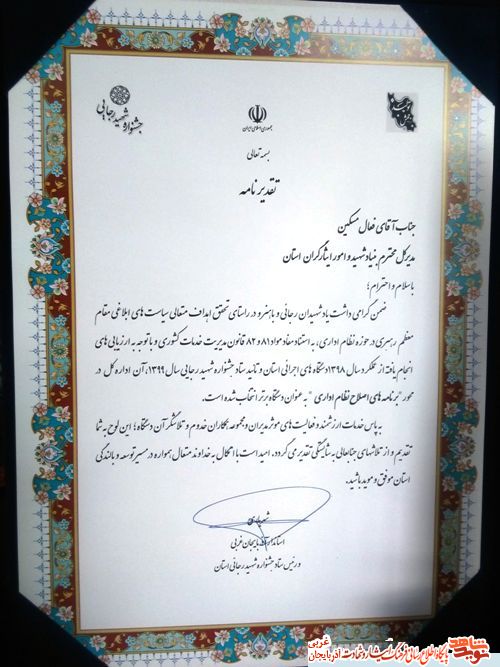 جشنواره شهید رجایی
جمهوری اسلامی ایران
بسمه تعالی
تقدیرنامه
جناب آقای فعال مسکین
مدیرکل محترم بنیاد شهید و امور ایثارگران استان
با سلام و احترام؛
ضمن گرامی داشت یاد شهیدان رجایی و باهنر و در راستای تحقق اهداف متعالی سیاست های ابلاغی مقام
معظم رهبری در حوزه نظام اداری، به استناد مفاد مواد ۸۱ و ۸۲ قانون مدیریت خدمات کشوری و با توجه به ارزیابی های
انجام یافته از عملکرد سال ۱۳۹۸ دستگاه های اجرائی استان و تائید ستاد جشنواره شهید رجایی سال ۱۳۹۹، آن اداره کل در
محور "برنامه های اصلاح نظام اداری" به عنوان دستگاه برتر انتخاب شده است.
به پاس خدمات ارزشمند و فعالیت های موثر مدیران و مجموعه همکاران خدوم و تلاشگر آن دستگاه؛ این لوح به شما
تقدیم و از تلاشهای جنابعالی به شایستگی تقدیر می گردد. امید است با اتکال به خداوند متعال همواره در مسیر توسعه و بالندگی
استان موفق و موید باشید.
استاندار آذربایجان غربی
و رئیس ستاد جشنواره شهید رجائی استان
نوید شاهد
پایگاه اطلاع رسانی فرهنگ ایثار و شهادت آذربایجان غربی